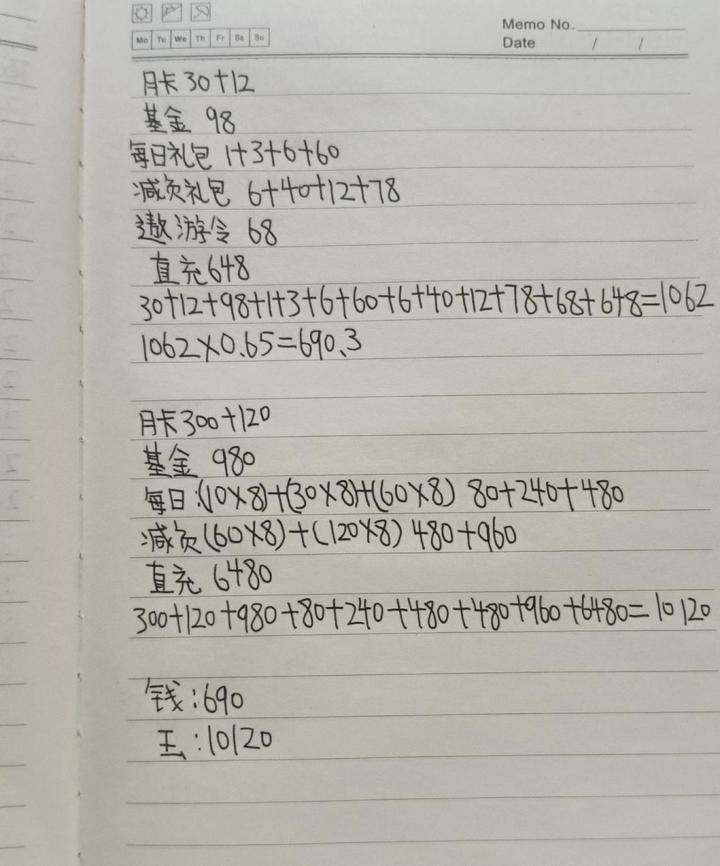 Memo No.
Mo Tu We Th Fr Sa Su
Date / /
月卡 30+12
基金 98
每日礼包 1+3+6+60
减负礼包 6+40+12+78
遨游令 68
直充 648
30+12+98+1+3+6+60+6+40+12+78+68+648=1062
1062×0.65=690.3
月卡 300+120
基金 980
每日:(10×8)+(30×8)+(60×8) 80+240+480
减负(60×8)+(120×8) 480+960
直充 6480
300+120+980+80+240+480+480+960+6480=10120
钱:690
玉:10120